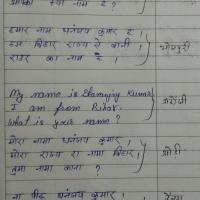 नाम है ?
हमार नाम धनंजय कुमार ह
हम बिहार राज्य से बानी
राउर का नाम ह ?
भोजपुरी
My name is Dhananjay Kumar
I am from Bihar.
What is your name ?
अंग्रेजी
मोरा नामा धनंजय कुमार ,
मोरा राज्य रा नामा बिहार ,
तुमा नामा काना ?
ओड़ी
धनंजय कुमार ।